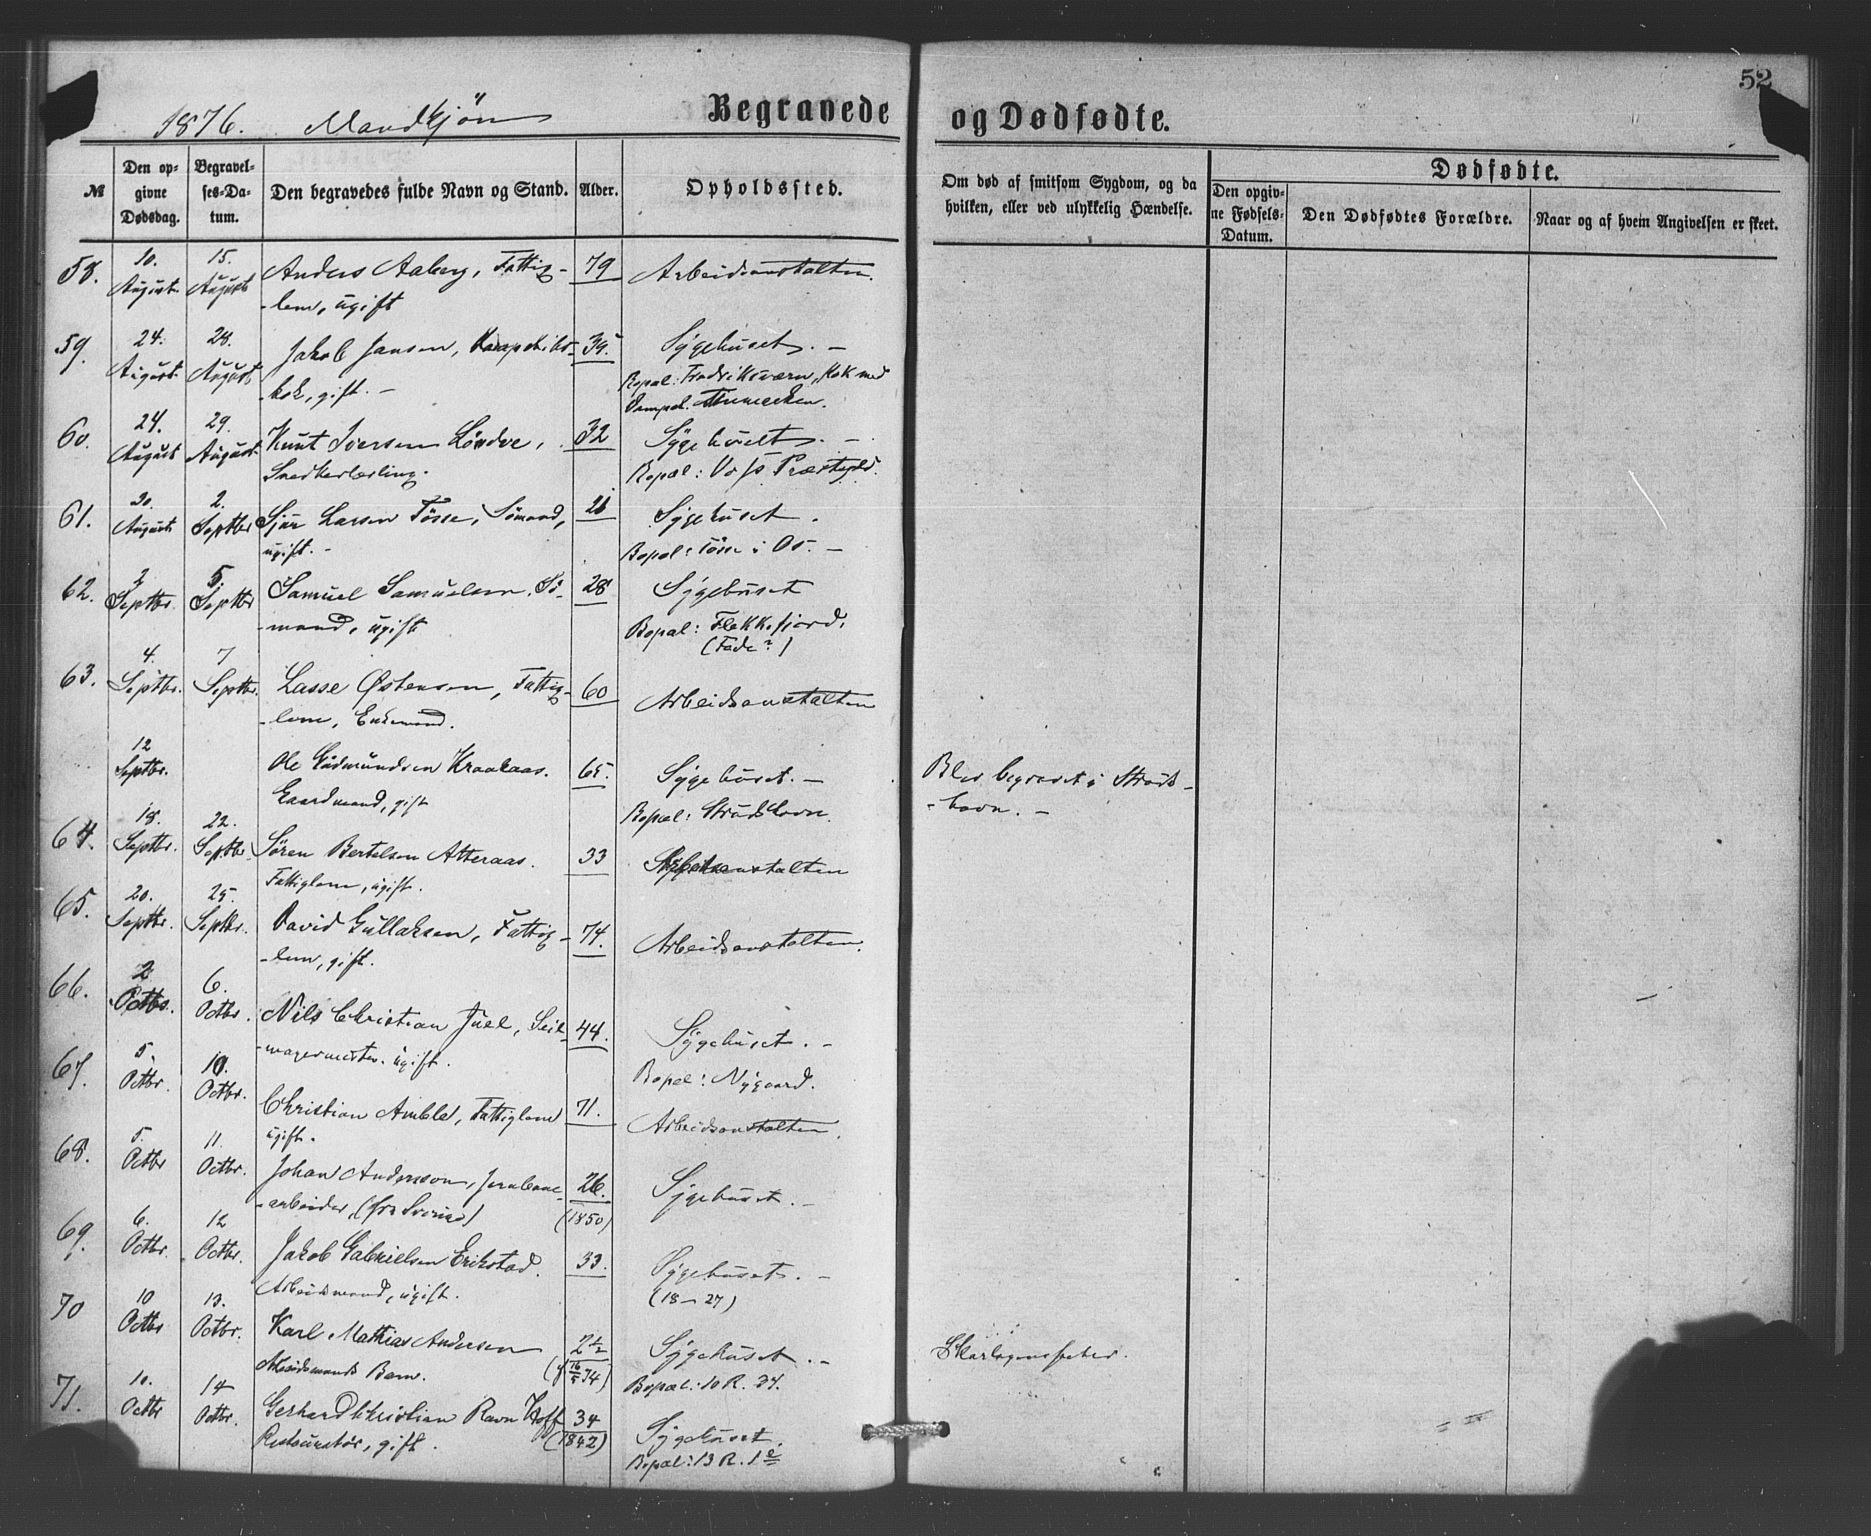 52
1876. Mandkjøn
Begravede og Dødfødte.
№
Den opgivne Dødsdag.
Begravelses-Datum.
Den begravedes fulde Navn og Stand.
Alder.
Opholdssted.
Om død af smitsom Sygdom, og da hvilken, eller ved ulykkelig Hændelse.
Dødfødte.
Den opgivne Fødsels-Datum.
Den Dødfødtes Forældre.
Naar og af hvem Angivelsen er skeet.
58. 10. August 15. August Anders Aaberg, Fattig- 79 Arbeidsanstalten.
-lem, ugift
59. 24. August 28. August Jakob Jansen, 35. Sygehuset. -
kok, gift. - Bopæl: Fredriksværn, Kok med
60. 24. August 29. August Knut Iversen Løndve, 32 Sygehuset. -
Snedkerlærling. Bopæl: Voss Præstegjeld.
61. 30. August 2. Septbr Sjur Larsen Tøsse, Sømand, 26 Sygehuset.
ugift. - Bopæl: Tøsse i Os. -
62. 2 Septbr. 5. Septbr Samuel Samuelsen, Sø- 28 Sygehuset
-mand, ugift Bopæl: Flekkefjord.
(Fede?)
63. 4. Septbr. 7 Septbr. Lasse Østensen, Fattig- 60 Arbeidsanstalten
-lem, Enkemand.
12 Septbr. Ole Gudmundsen Kraakaas. 65. Sygehuset. - Blev begravet i Struds-
Gaardmand, gift Bopæl: Strudshavn. -havn. -
64. 18. Septbr. 22. Septbr. Søren Bertelsen Atteraas. 33 Arbeidsanstalten
Fattiglem, ugift.
65. 20. Septbr. 25. Septbr. David Gullaksen, Fattig- 74. Arbeidsanstalten.
-lem, gift.
66. 2 Octbr. 6. Octbr. Nils Christian Juel, Seil- 44. Sygehuset. -
-magermester. ugift. Bopæl: Nygaard.
67. 5 Octbr. 10. Octbr. Christian Amble, Fattiglem 71. Arbeidsanstalten.
ugift.
68. 5. Octbr 11. Octbr. Johan Andersson, Jernbane- 26. Sygehuset. -
-arbeider, (fra Sverige) (1850)
69. 6. Octbr. 12 Octbr. Jakob Gabrielsen Erikstad. 33. Sygehuset. -
Arbeidsmand, ugift. (18-27)
70 10 Octbr 13. Octbr. Karl Mathias Andersen 2½ Sygehuset. - Skarlagensfeber.
Arbeidsmands Barn. (f 16/5 74) Bopæl: 10 R. 24.
71. 10. Octbr 14 Octbr. Gerhard Christian Ravn Hoff 34 Sygehuset.
Restauratør, gift. (1842) Bopæl: 13 R. 1